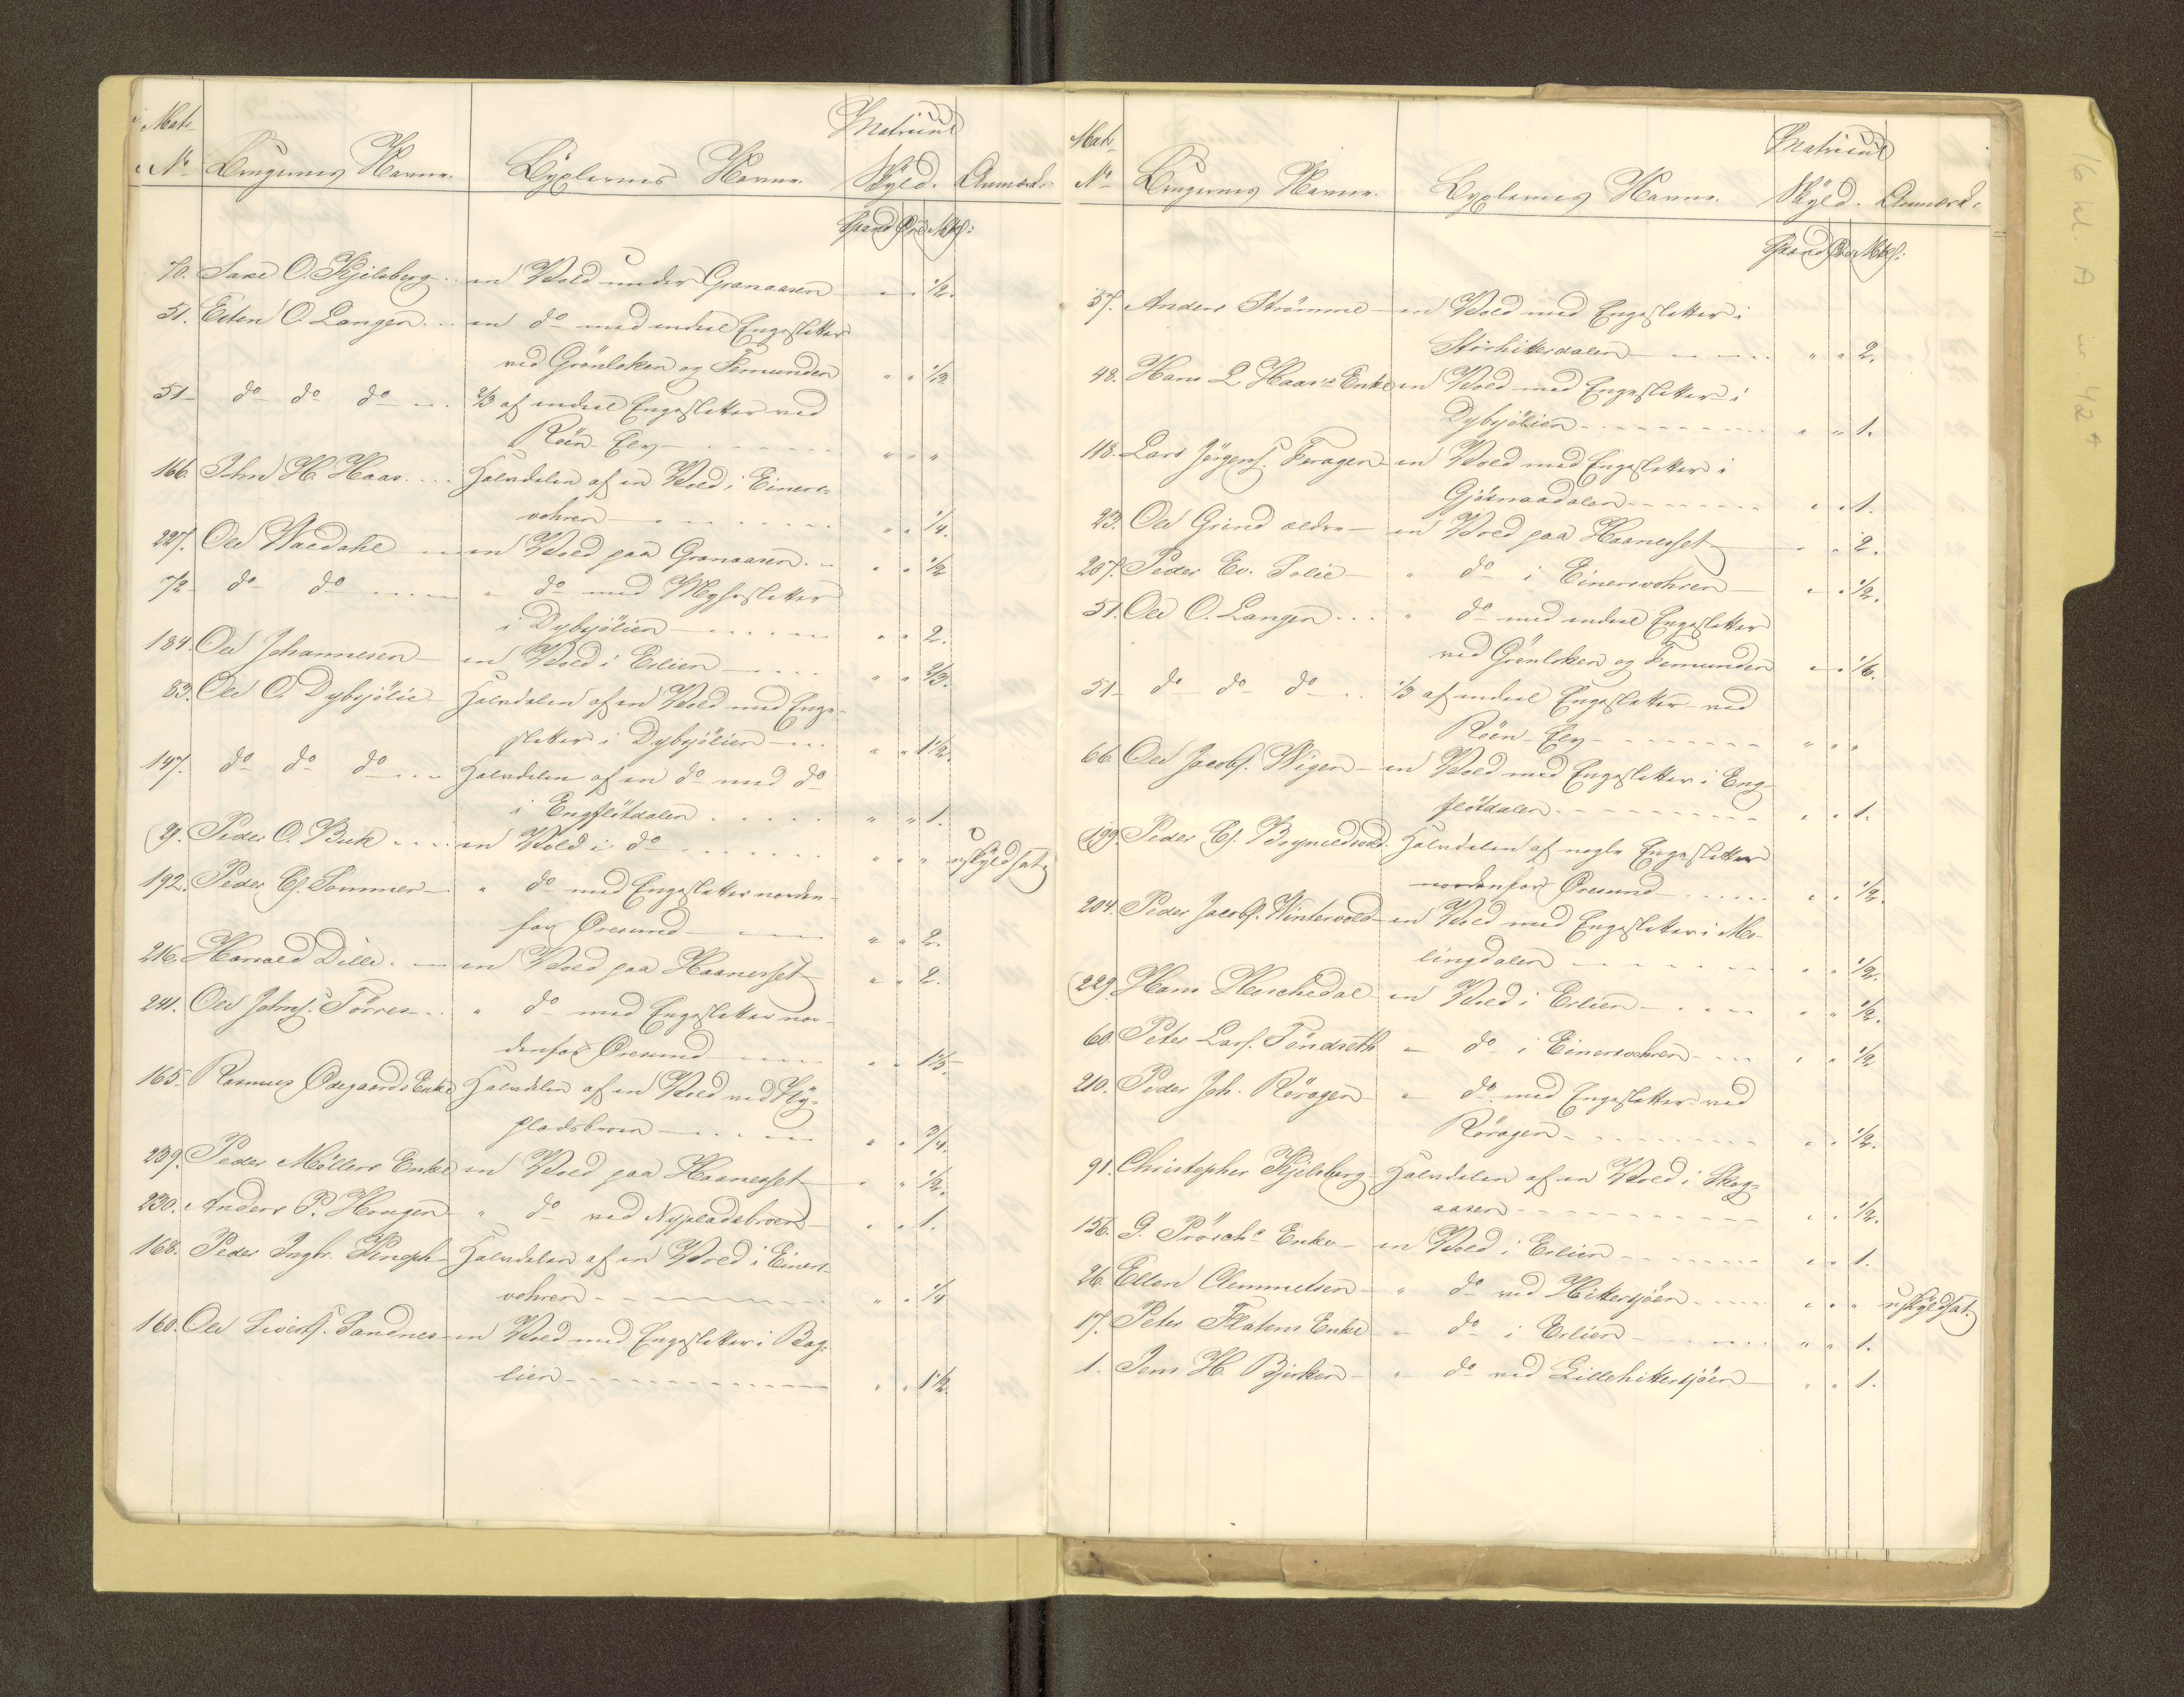 Mat: Matricul
No Brugernes Navne. Byxlernes Navne. Skyld. Anmærk:
Spand Øre Mkl:
70. Isac O. Kjelsberg .. en Vold under Granaasen " " 1/2.
51. Esten O. Langen ... en do med endeel Engesletter
ved Grönloken og Femunden " " 1/3
51 do do do ... 2/3 af endeel Engesletter ved
Röen Elv " " "
166. John H. Haas .... Halvdelen af en Vold i Einers-
vohren " " 1/4.
227. Ole Waldahl en Vold paa Granaasen. " " 1/2
72 do do " do med Myhrsletter
i Dybsjölien " " 2.
184. Ole Johannesen en Vold i Erlien " " 2/3.
83. Ole O. Dybsjölie Halvdelen af en Vold med Enge-
sletter i Dybsjölien " " 1 1/2.
147. do do do ... Halvdelen af en do med do
i Engflötdalen " " 1.
29. Peder O. Buk .... en Vold i do " " " uskyldsat
192. Peder Es. Sommer " do med Engesletter norden-
for Øresund " " 2.
216. Harald Dille. en Vold paa Haanesset " " 2.
241. Ole Johns. Törres .. " do med Engesletter nor-
denfor Øresund " " 1 1/3.
165. Rasmus Ødegaards Enke Halvdelen af en Vold ved Ny-
pladsbroen " " 3/4.
239. Peder Möllers Enke en Vold paa Haanesset " " 1/2.
230. Anders P. Hougen " do ved Nypladsbroen " " 1.
168. Peder Ingbr. Knoph Halvdelen af en Vold i Einers-
vohren " " 1/4
160. Ole Siverts. Sandnes en Vold med Engesletter i Bag-
lien " " 1 1/2.
Mat: Matricul
No Brugernes Navne. Byxlernes Navne. Skyld. Anmærk:
Spand Øre Mkl:
57. Anders Strömmo en Vold med Engesletter i
Storhitterdalen " " 2.
48. Hans L. Haas's Enke en Vold med Engesletter i
Dybsjölien " " 1.
118. Lars Jörgens. Feragen en Vold med Engesletter i
Gjösvaadalen " " 1.
23. Ole Grind ældre en Vold paa Haanesset " " 2.
207. Peder Ev. Solie " do i Einersvohren " " 1/2.
51. Ole O. Langen ... " do med endeel Engesletter
ved Grönloken og Femunden " " 1/6.
51 do do do .. 1/3 af endeel Engesletter ved
Röen Elv " " "
66. Ole Jacobs. Wigen en Vold med Engesletter i Eng-
flötdalen " " 1.
199. Peder Es. Bryneldsvold Halvdelen af nogle Engesletter
nordenfor Øresund " " 1/2.
204. Peder Jacobs. Wintervold en Vold med Engesletter i Mo-
lingdalen " " 1/2.
229. Hans Herchedal en Vold i Erlien " " 1/2.
60. Peter Lars. Töndseth " do i Einersvohren " " 1/2
210. Peder Joh. Rörogen " do med Engesletter ved
Rörogen " " 1/2.
91. Christopher Kjelsberg Halvdelen af en Vold i Skog-
aasen " " 1/2.
156. G. Prösch's Enke en Vold i Erlien " " 1.
26. Ellen Clemmetsen " do ved Hittersjöen " " " uskyldsat.
17. Peter Flatens Enke " do i Erlien " " 1.
1. Jens H. Bjerken " do ved Lillehittersjöen " " 1.
16 kl. A nr. 42 a